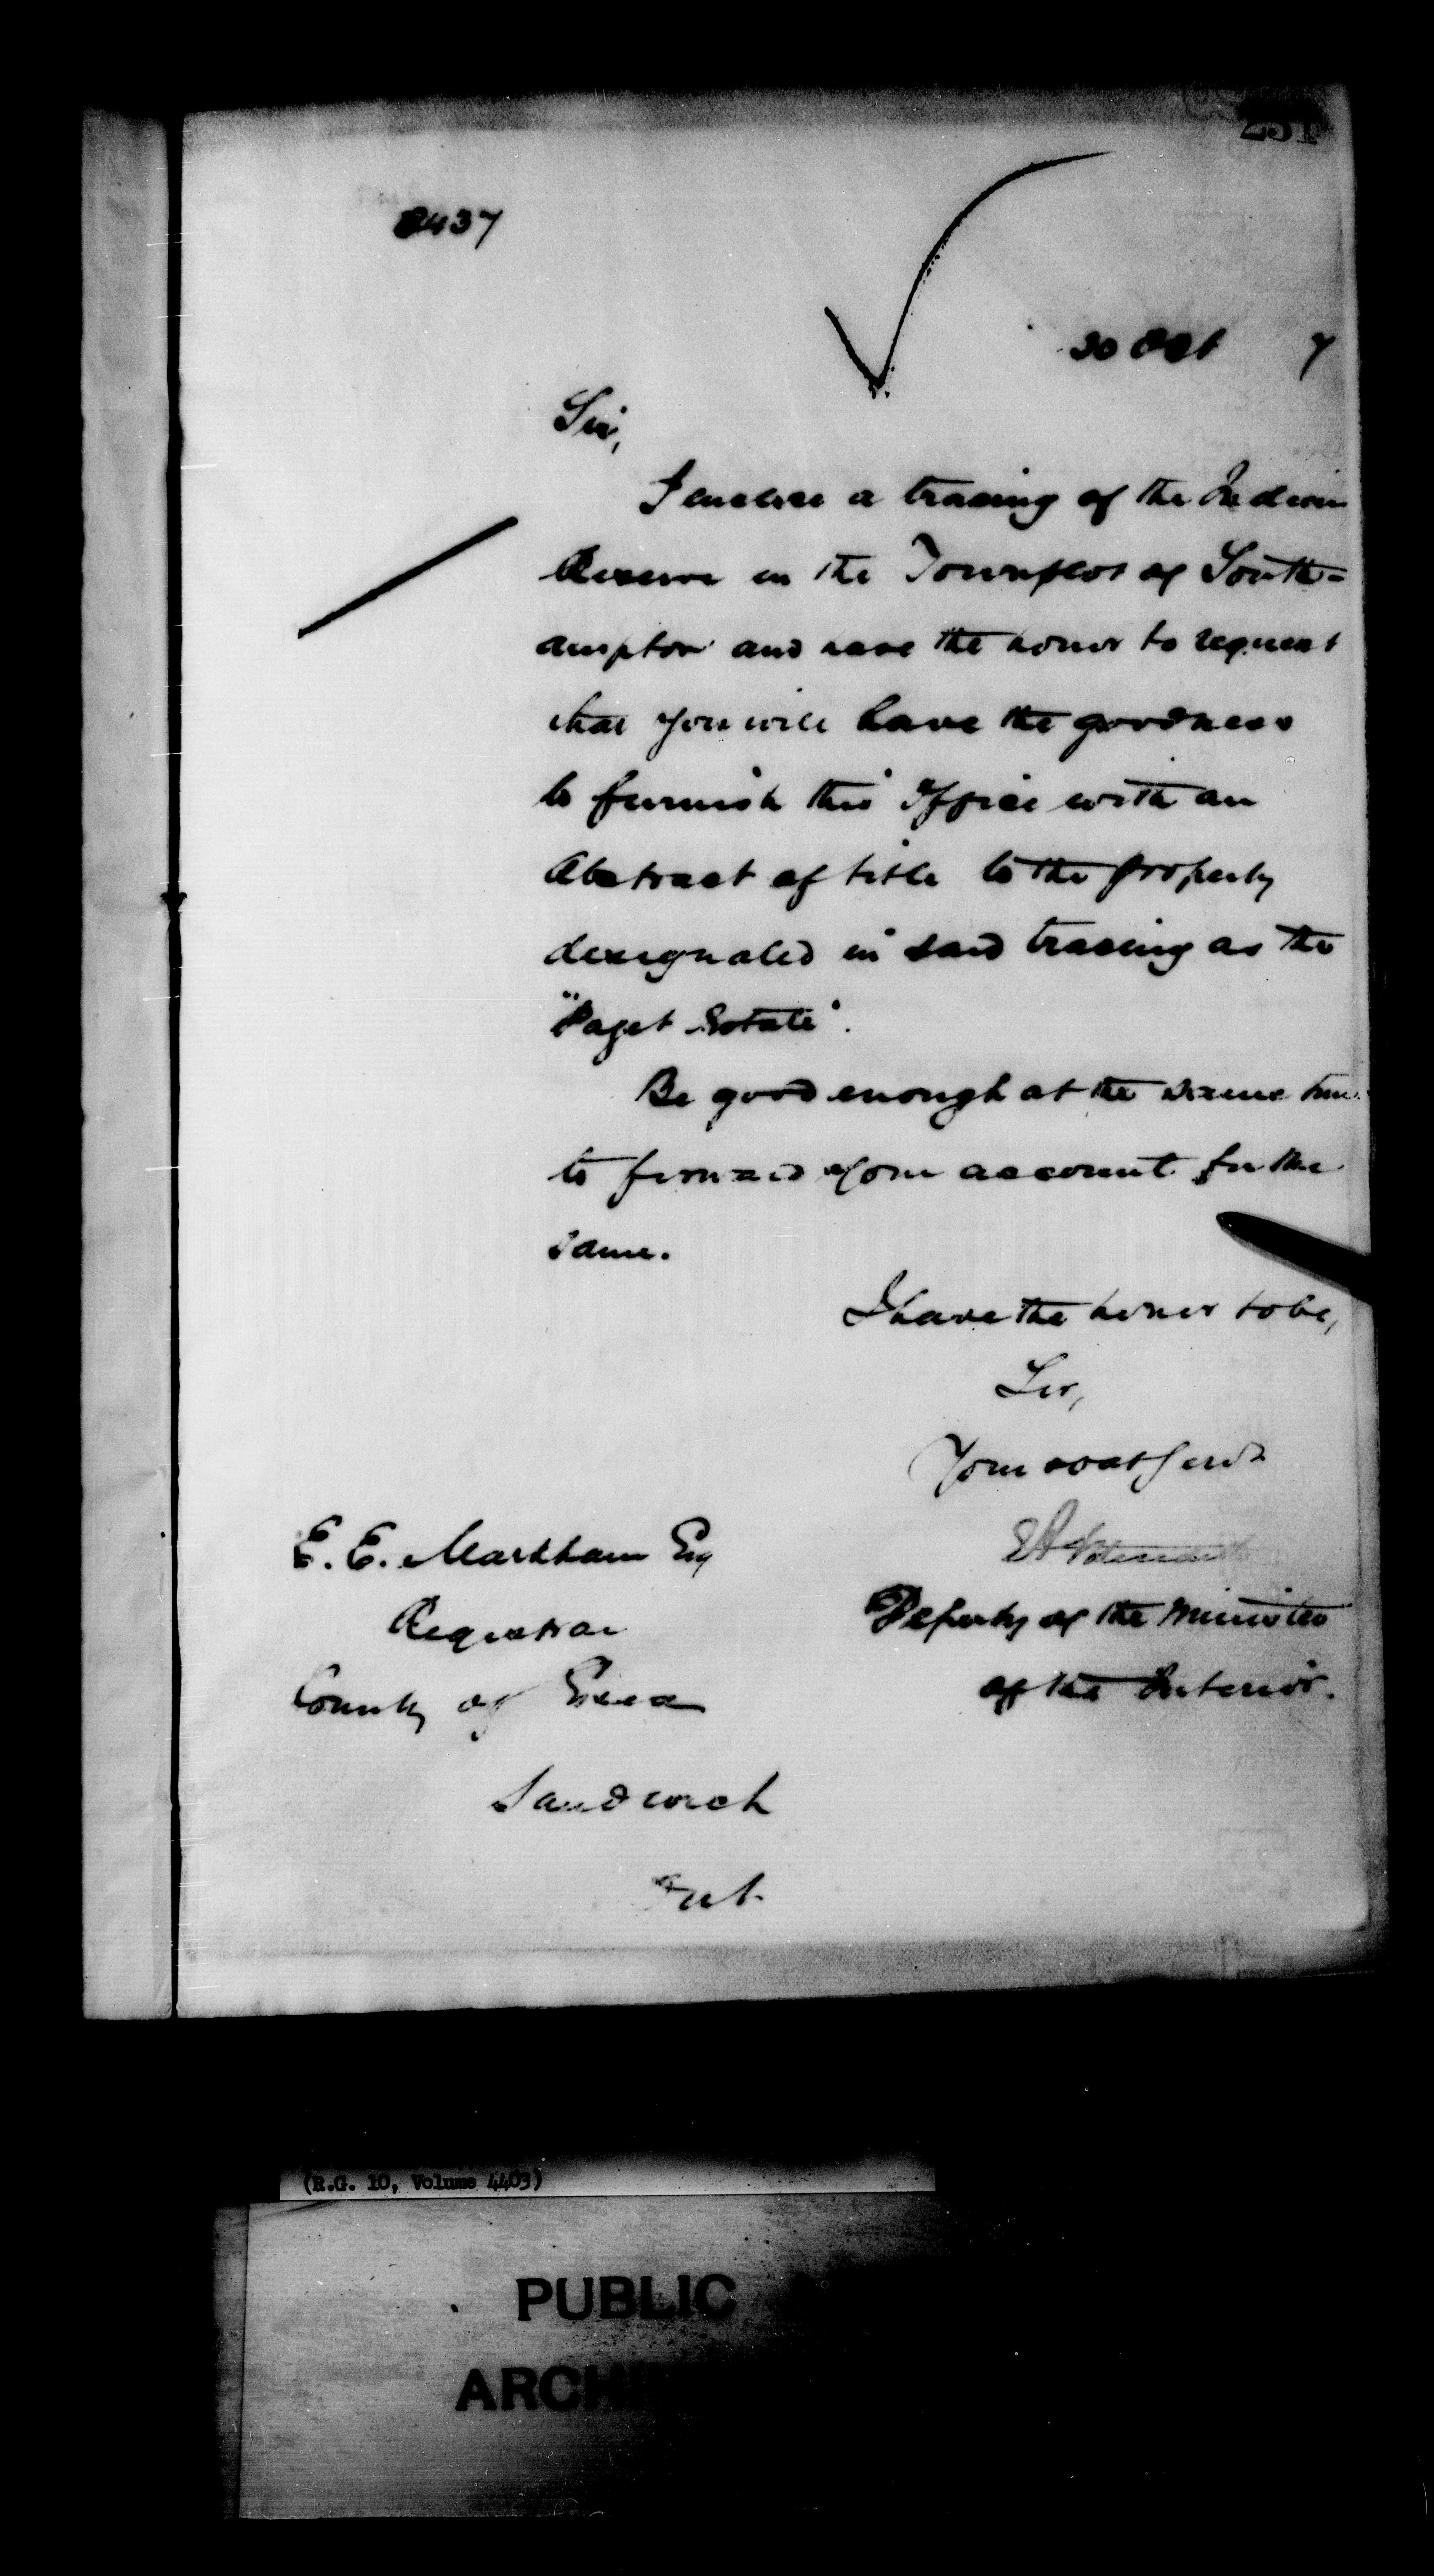 251
8437
30 Oct 7
Sir,
I enclose a tracing of the Indian
Reserve in the Townplot of South-
ampton and have the honor to request
that you will have the goodness
to furnish this Office with an
Abstract of title to the property
designated in said tracing as the
"Paget Estate".
Be good enough at the same time
to forward your account for the
same.
I have the honor to be,
Sir,
Your
E. E. Markham Esq
Registrar
Deputy of the Minister
County of
of the Interior.
Sandwich
Ont.
(R.G. 10, Volume 4403)
PUBLIC
ARCH